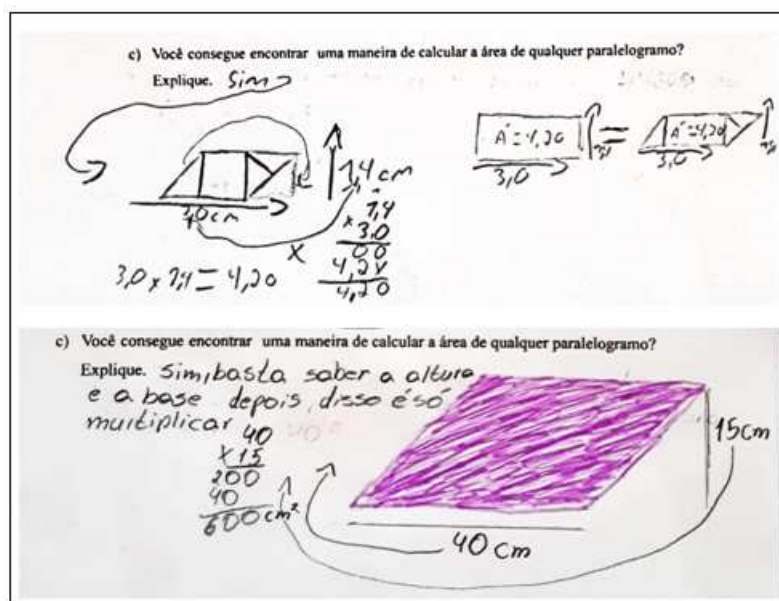 c) Você consegue encontrar uma maneira de calcular a área de qualquer paralelogramo?
Explique. Sim
1,4 cm
3,0 cm
X
1,4
x 3,0
00
4,2
4,20
3,0 x 1,4 = 4,20
A = 4,20
3,0
=
A = 4,20
3,0
c) Você consegue encontrar uma maneira de calcular a área de qualquer paralelogramo?
Explique. Sim, basta saber a altura
e a base depois, disso é só
multiplicar
40
x 15
200
40
600 cm²
15cm
40 cm